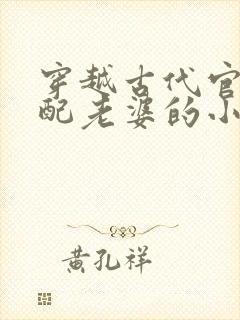 穿越古代官
配老婆的小
黄孔祥